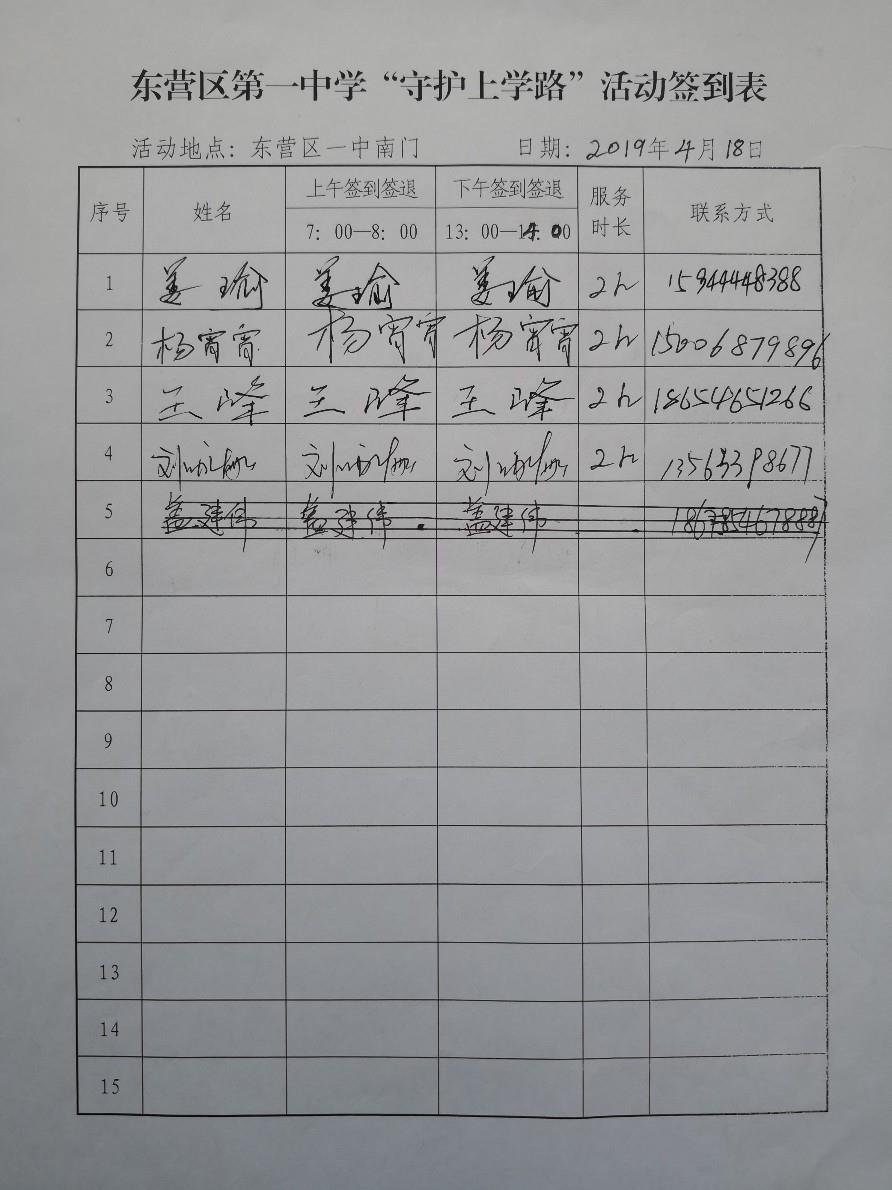 东营区第一中学“守护上学路”活动签到表
活动地点：东营区一中南门 日期：2019年4月18日
序号 姓名 上午签到签退 下午签到签退 服务时长 联系方式
7：00—8：00 13：00—14：00
1 姜瑜 姜瑜 姜瑜 2h 15944448388
2 杨霄霄 杨霄霄 杨霄霄 2h 15006879896
3 王峰 王峰 王峰 2h 18654651266
4 刘 刘 刘 2h 13563398677
5 盖建伟 盖建伟 盖建伟
6
7
8
9
10
11
12
13
14
15